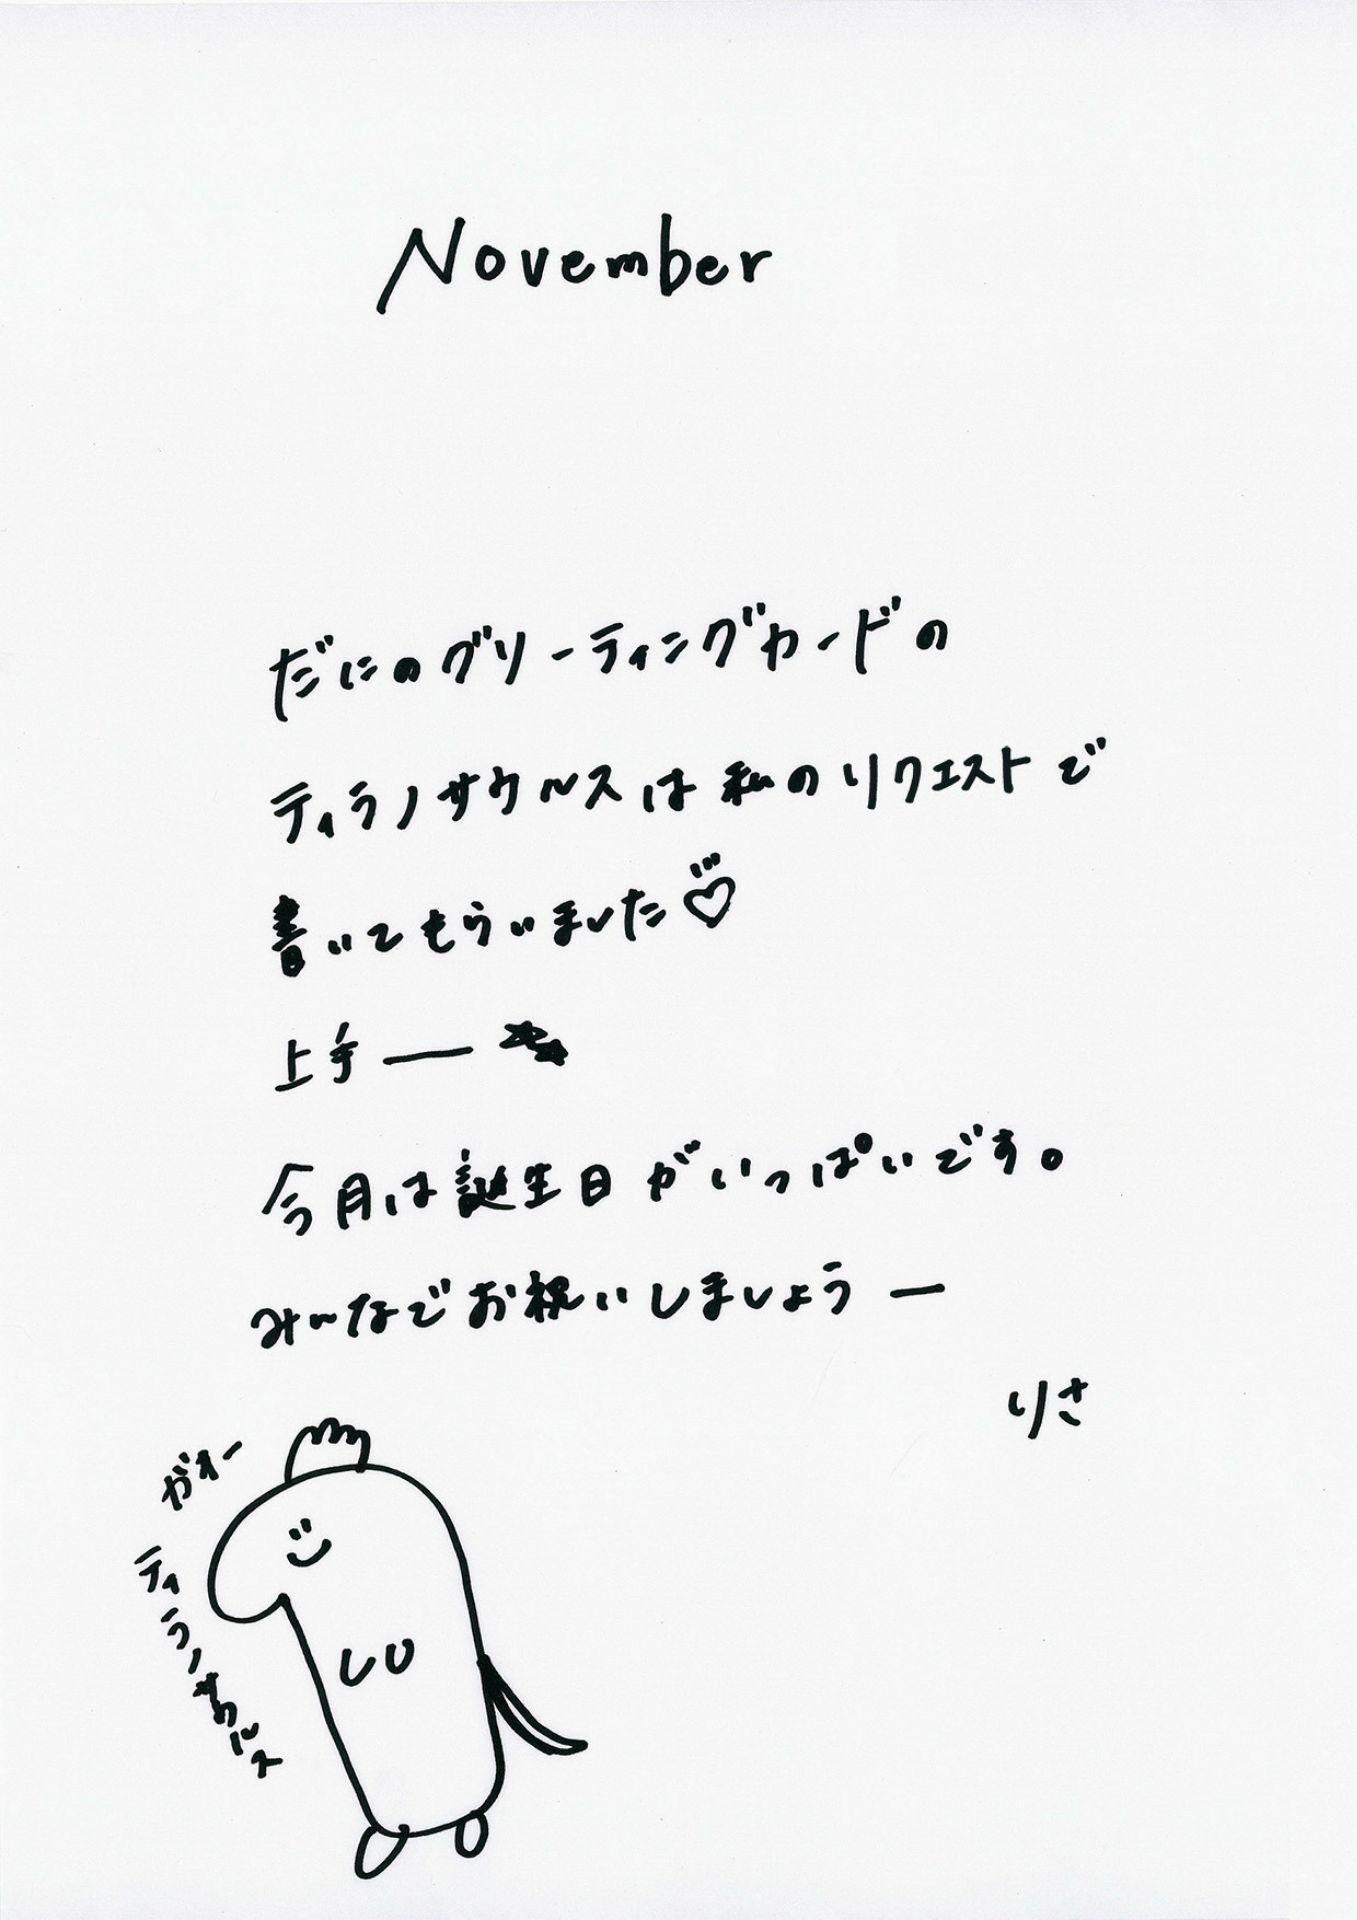 November
だにのグリーティングカードの
ティラノサウルスは私のリクエストで
書いてもらいました♡
上手——
今月は誕生日がいっぱいです。
みーなでお祝いしましょうー
りさ
ガオー
ティラノサウルス